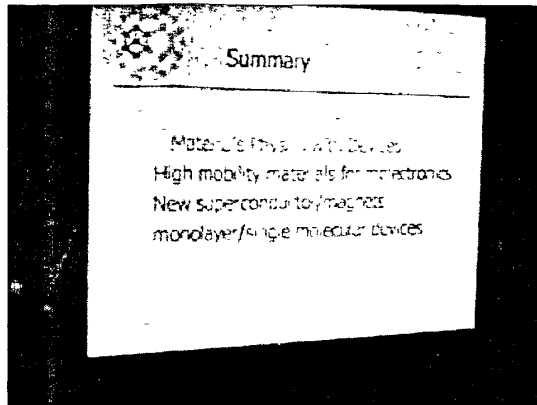 Summary
Materials Physics with Devices
High mobility materials for molectronics
New superconductor/magnets
monolayer/single molecular devices